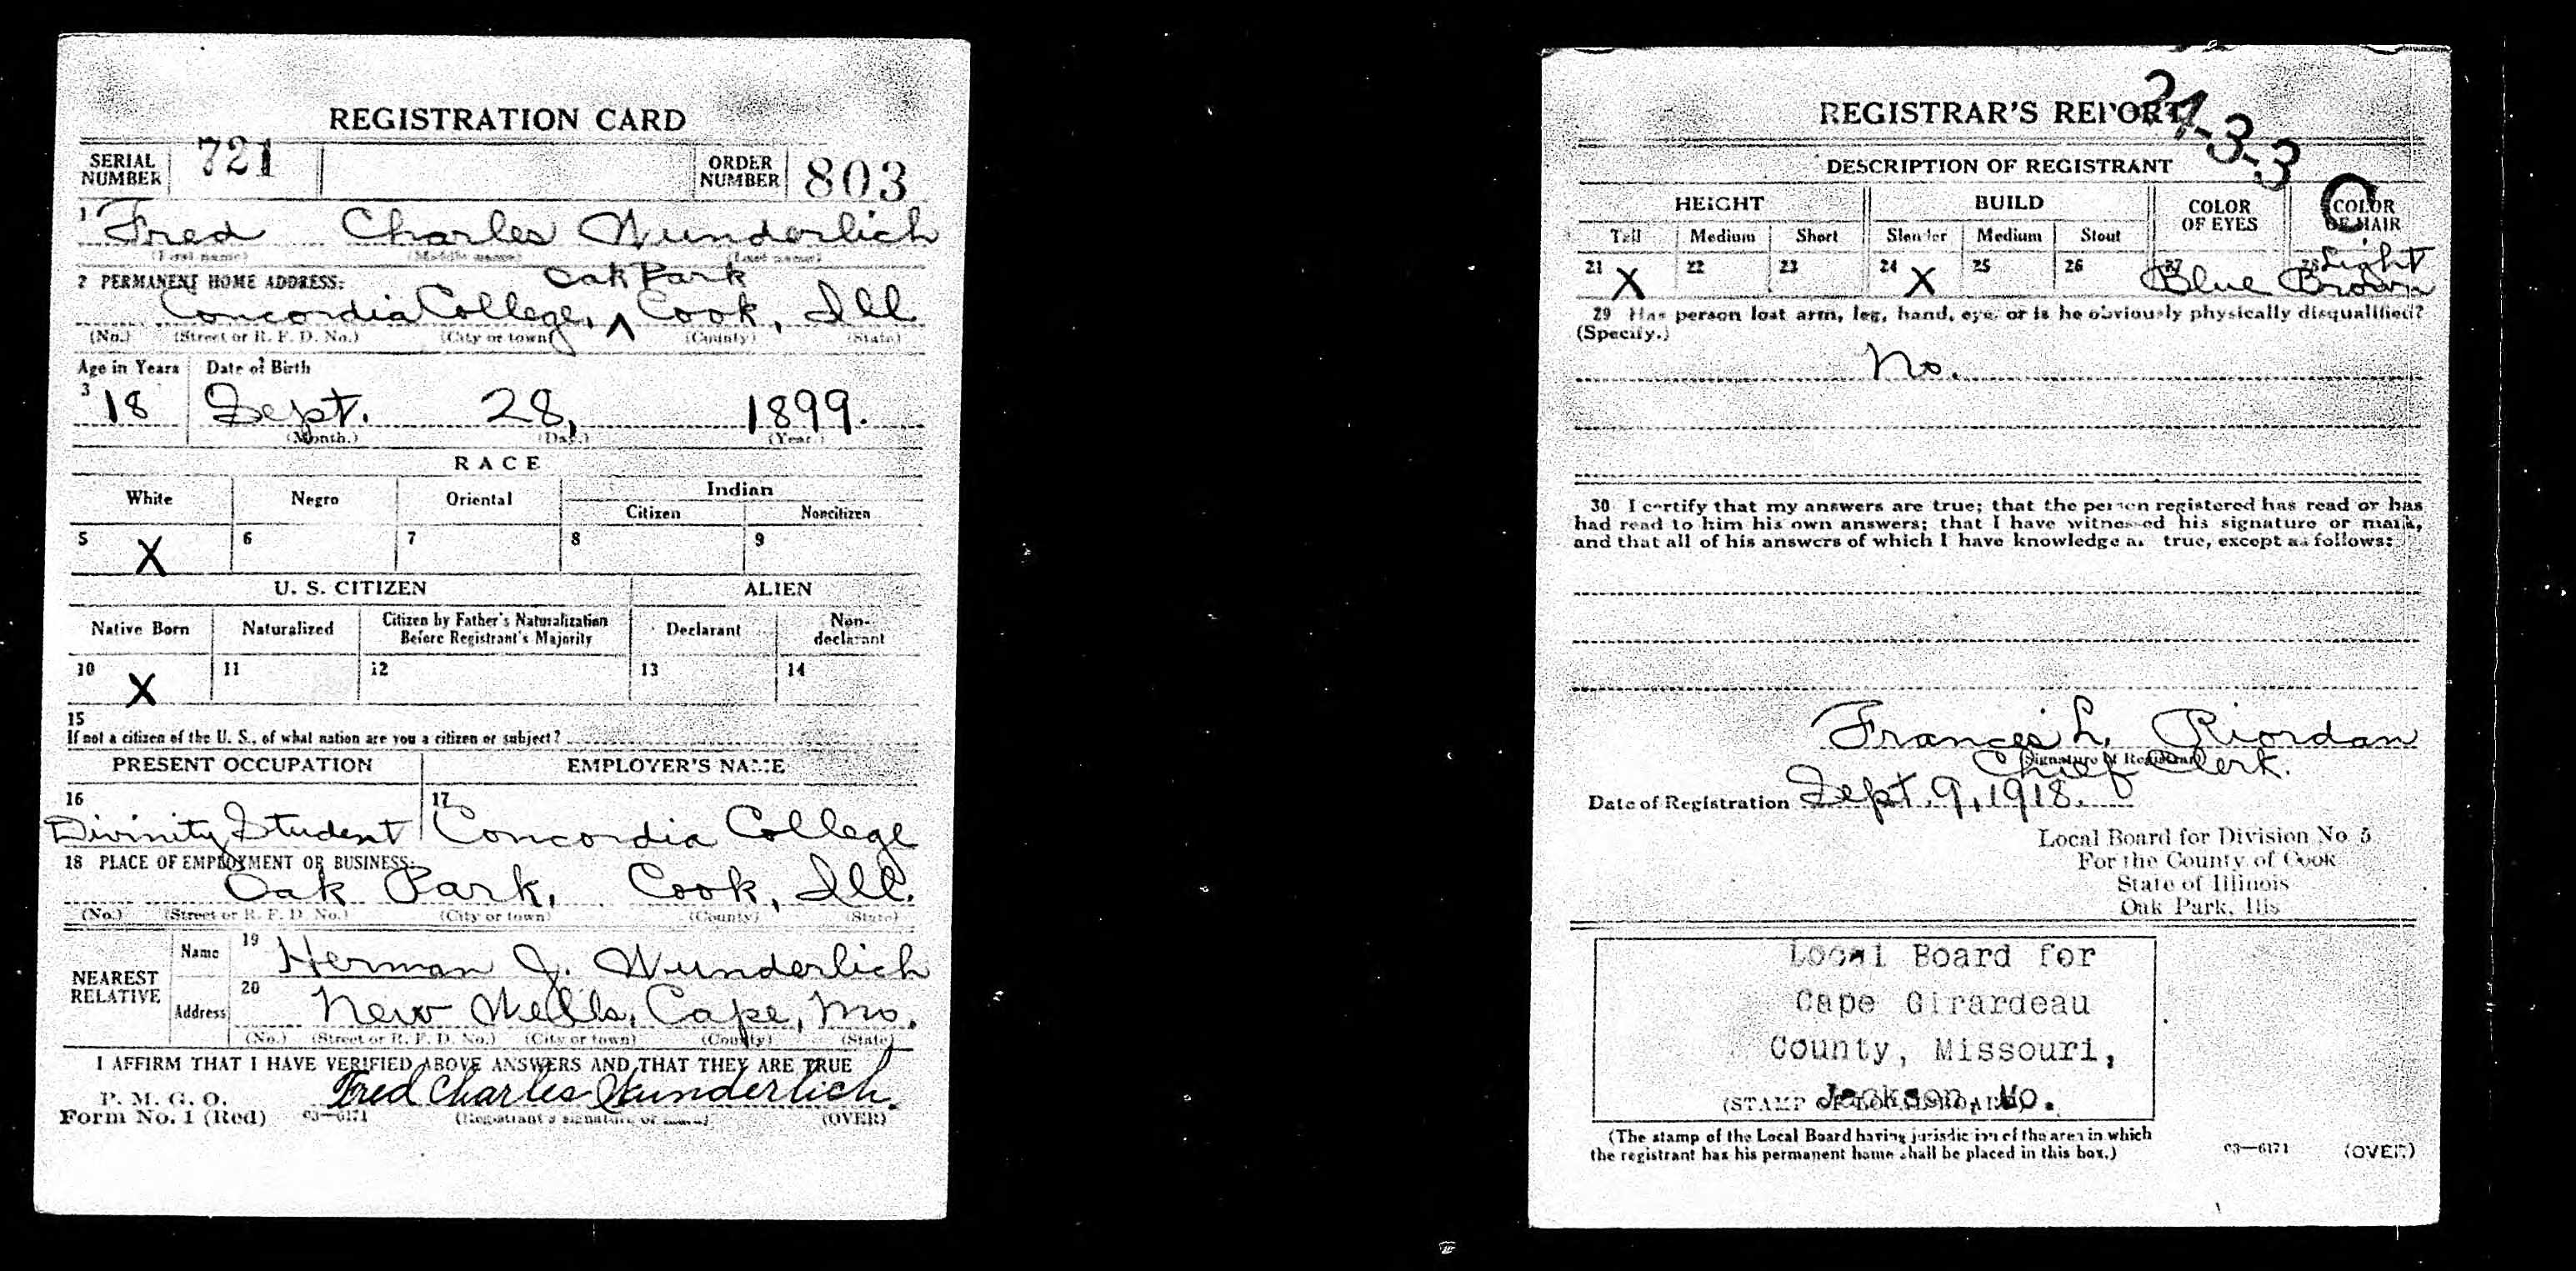 REGISTRATION CARD
SERIAL NUMBER 721 ORDER NUMBER 803
1 Fred Charles Wunderlich
(First name) (Middle name) (Last name)
Oak Park
2 PERMANENT HOME ADDRESS:
Concordia College, ^ Cook, Ill
(No.) (Street or R. F. D. No.) (City or town) (County) (State)
Age in Years Date of Birth
3 18 Sept. 28, 1899.
(Month.) (Day.) (Year.)
RACE
White Negro Oriental Indian
Citizen Noncitizen
5 X 6 7 8 9
U. S. CITIZEN ALIEN
Native Born Naturalized Citizen by Father's Naturalization Before Registrant's Majority Declarant Non-declarant
10 X 11 12 13 14
15
If not a citizen of the U. S., of what nation are you a citizen or subject?
PRESENT OCCUPATION EMPLOYER'S NAME
16 17
Divinity Student Concordia College
18 PLACE OF EMPLOYMENT OR BUSINESS:
Oak Park, Cook, Ill.
(No.) (Street or R. F. D. No.) (City or town) (County) (State)
NEAREST RELATIVE
Name 19 Herman J. Wunderlich
Address 20 New Wells, Cape, Mo.
(No.) (Street or R. F. D. No.) (City or town) (County) (State)
I AFFIRM THAT I HAVE VERIFIED ABOVE ANSWERS AND THAT THEY ARE TRUE
P. M. G. O.
Form No. 1 (Red) 03—6171 Fred Charles Wunderlich.
(Registrant's signature or mark) (OVER)
REGISTRAR'S REPORT
21-3-3 C
DESCRIPTION OF REGISTRANT
HEIGHT BUILD COLOR OF EYES COLOR OF HAIR
Tall Medium Short Slender Medium Stout
21 X 22 23 24 X 25 26 27 Blue 28 Light Brown
29 Has person lost arm, leg, hand, eye, or is he obviously physically disqualified?
(Specify.)
No.
30 I certify that my answers are true; that the person registered has read or has
had read to him his own answers; that I have witnessed his signature or mark,
and that all of his answers of which I have knowledge are true, except as follows:
Francis L. Riordan
(Signature of Registrar)
Chief Clerk.
Date of Registration Sept. 9, 1918.
Local Board for Division No 5
For the County of Cook
State of Illinois
Oak Park, Ills
Local Board for
Cape Girardeau
County, Missouri,
Jackson, Mo.
(STAMP OF LOCAL BOARD)
(The stamp of the Local Board having jurisdiction of the area in which
the registrant has his permanent home shall be placed in this box.)
03—6171 (OVER)